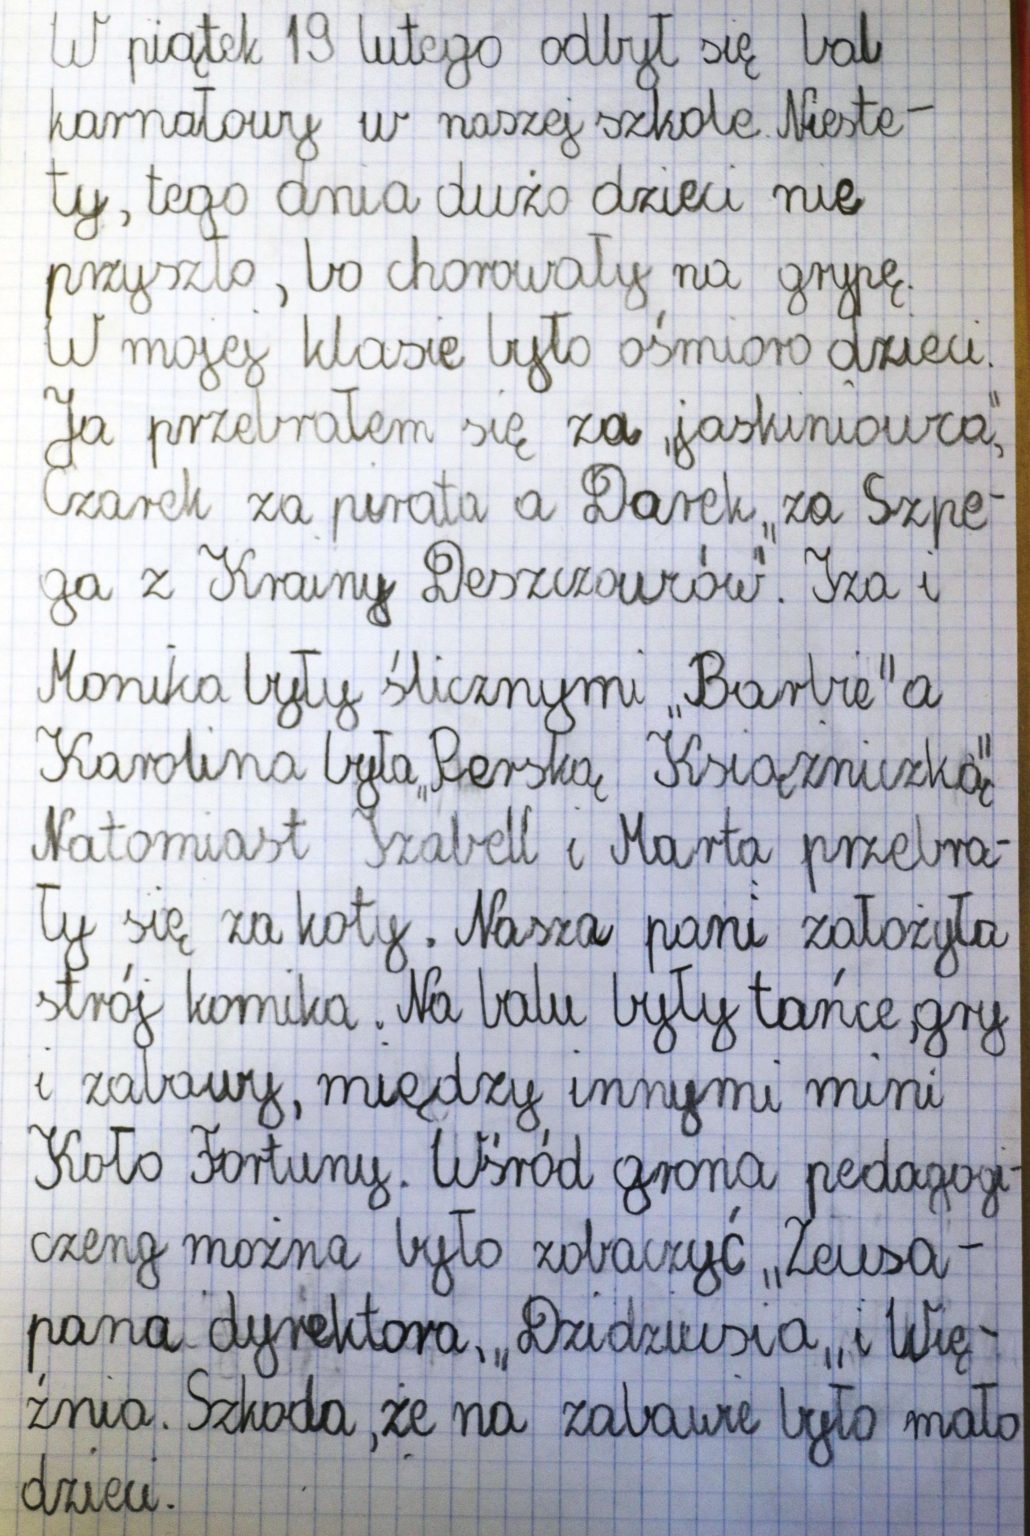 W piątek 19 lutego odbył się bal
karnałowy w naszej szkole. Nieste-
ty, tego dnia dużo dzieci nie
przyszło, bo chorowały na grypę.
W mojej klasie było ośmioro dzieci.
Ja przebrałem się za „jaskiniowca",
Czarek za pirata a Darek „za Szpe-
ga z Krainy Deszczowców". Iza i
Monika były ślicznymi „Barbie" a
Karolina była „Perską Księżniczką"
Natomiast Izabell i Marta przebra-
ły się za koty. Nasza pani założyła
strój komika. Na balu były tańce, gry
i zabawy, między innymi mini
Koło Fortuny. Wśród grona pedagogi-
czeng można było zobaczyć „Zeusa-
pana dyrektora, „Dzidziusia„ i Wię-
źnia. Szkoda, że na zabawie było mało
dzieci.